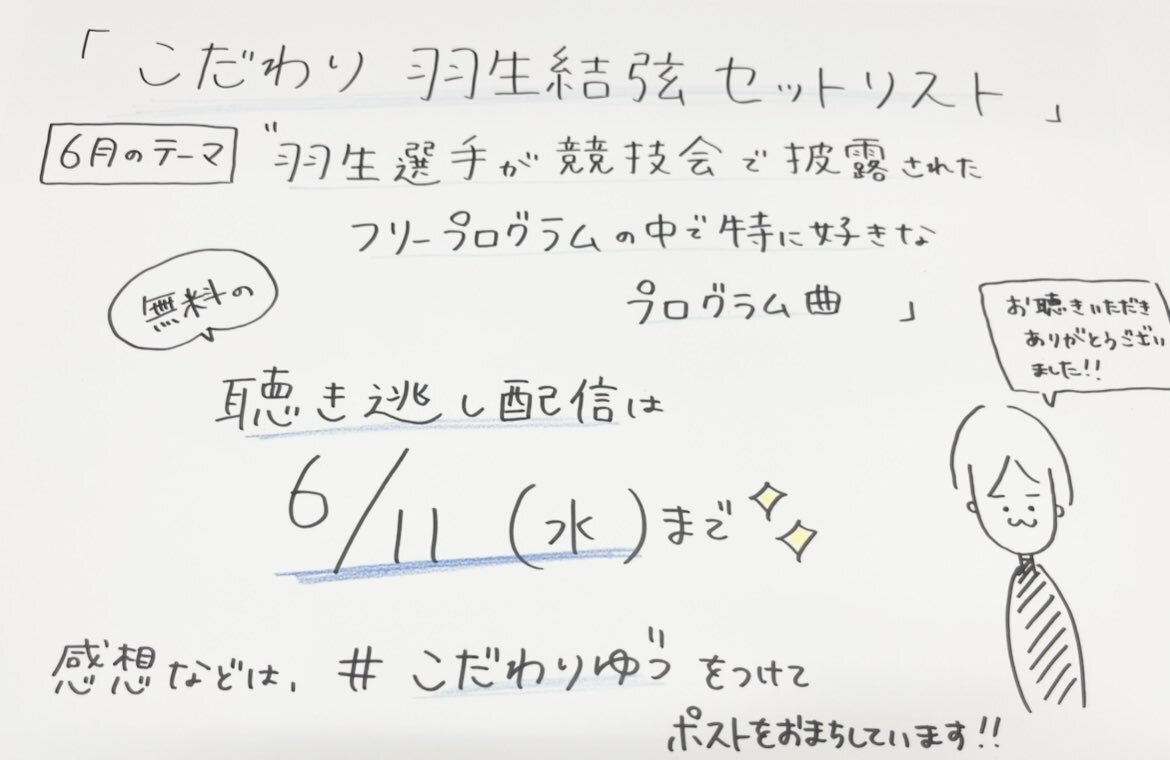 「こだわり 羽生結弦 セットリスト」
6月のテーマ
"羽生選手が競技会で披露された
フリープログラムの中で特に好きな
プログラム曲 」
無料の
聴き逃し配信は
6/11 (水)まで
お聴きいただき
ありがとうござい
ました!!
感想などは, #こだわりゆづ をつけて
ポストをおまちしています!!